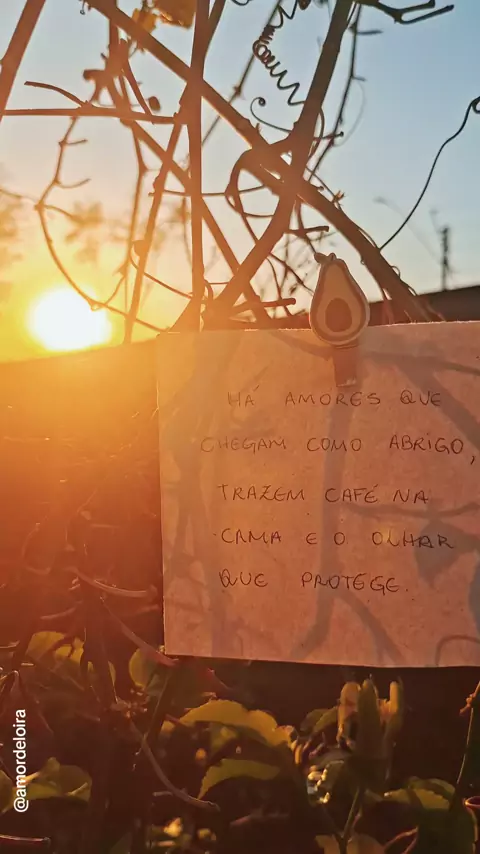 HÁ AMORES QUE
CHEGAM COMO ABRIGO,
TRAZEM CAFÉ NA
CAMA E O OLHAR
QUE PROTEGE.
@amordeloira